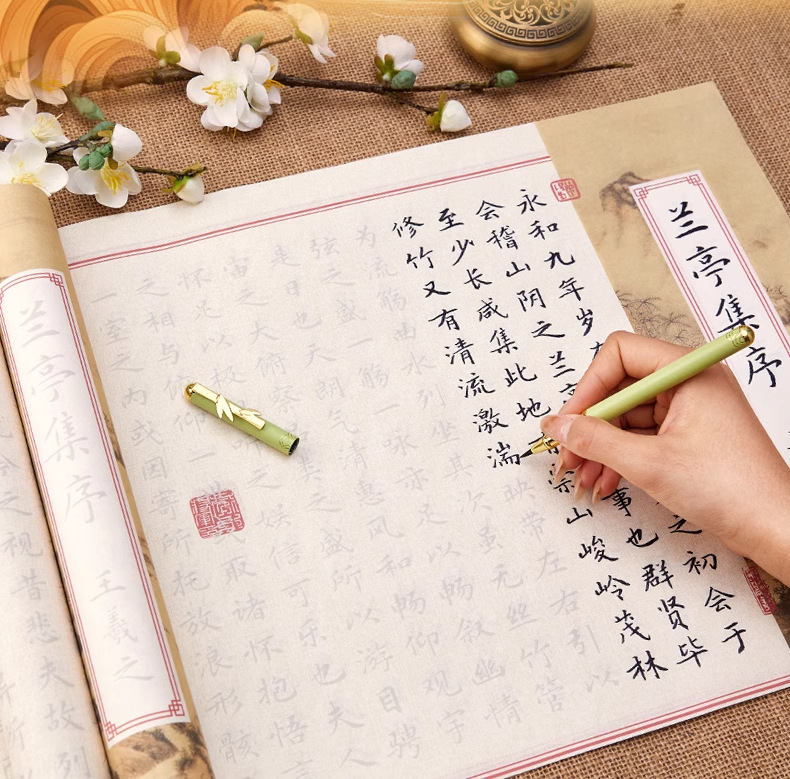 兰亭集序
永和九年岁在之初会于
会稽山阴之兰亭事也群贤毕
至少长咸集此地有崇山峻岭茂林
修竹又有清流激湍映带左右引以
为流觞曲水列坐其次虽无丝竹管
弦之盛一觞一咏亦足以畅叙幽情
是日也天朗气清惠风和畅仰观宇
宙之大俯察类之盛所以游目骋
怀足以极之娱信可乐也夫人
之相与俯仰一取诸怀抱悟言
一室之内或因寄所托放浪形骸
兰亭集序
王羲之
之视昔悲夫故列